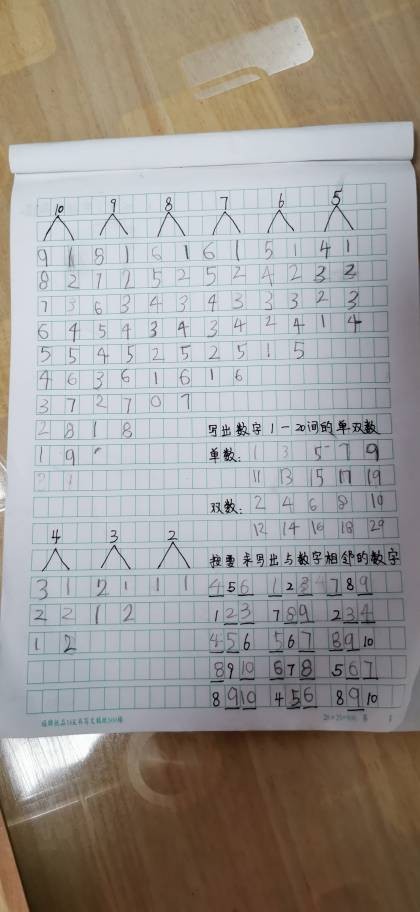 10 9 8 7 6 5
9 1 8 1 6 1 6 1 5 1 4 1
8 2 7 2 5 2 5 2 4 2 3 2
7 3 6 3 4 3 4 3 3 3 2 3
6 4 5 4 3 4 3 4 2 4 1 4
5 5 4 5 2 5 2 5 1 5
4 6 3 6 1 6 1 6
3 7 2 7 0 7
2 8 1 8
写出数字1-20间的单.双数
1 9
单数: 1 3 5 7 9
11 13 15 17 19
双数: 2 4 6 8 10
12 14 16 18 20
4 3 2
按要求写出与数字相邻的数字
3 1 2 1 1 1
4 5 6 1 2 3 4 7 8 9
2 2 1 2
1 2 3 7 8 9 2 3 4
1 2
4 5 6 5 6 7 8 9 10
8 9 10 6 7 8 5 6 7
8 9 10 4 5 6 8 9 10